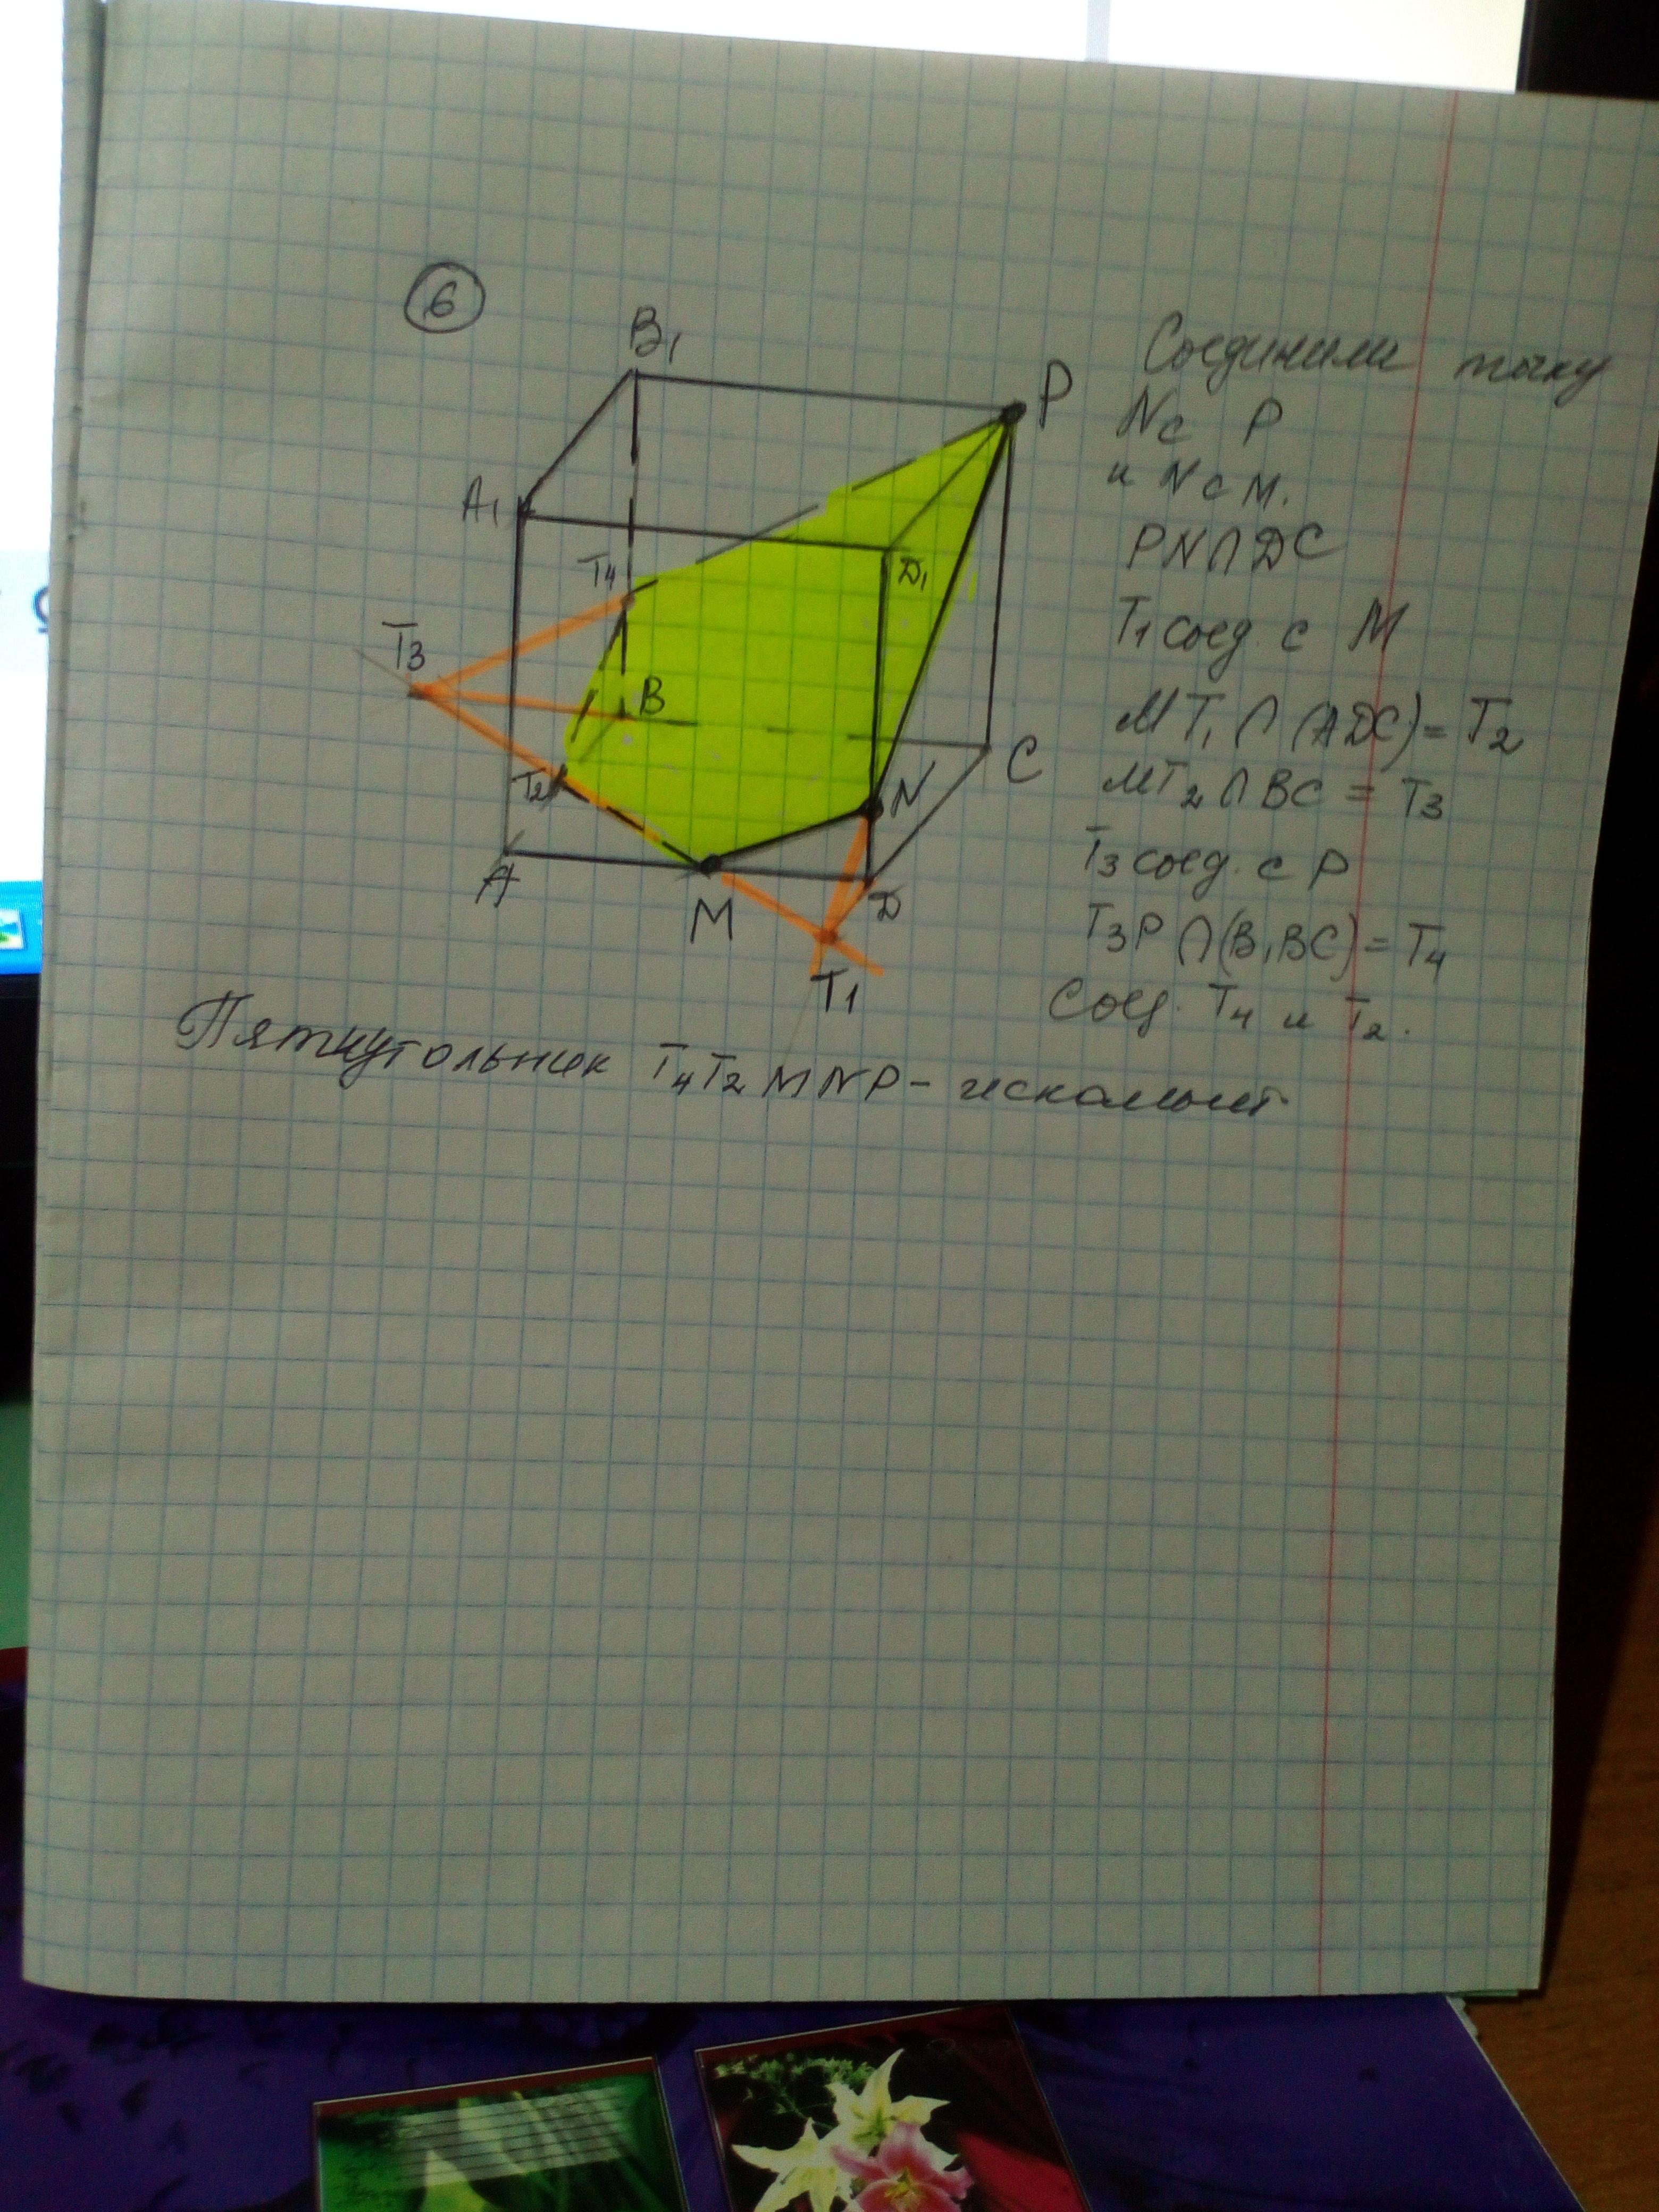 6
B₁
P
A₁
T₄
D₁
T₃
B
C
T₂
N
A
M
D
T₁
Соединили точку
N с P
и N с M.
PN∩DC
T₁ соед. с M
MT₁ ∩ (ADC) = T₂
MT₂ ∩ BC = T₃
T₃ соед. с P
T₃P ∩ (B₁BC) = T₄
Соед. T₄ и T₂.
Пятиугольник T₄T₂MNP – искомый